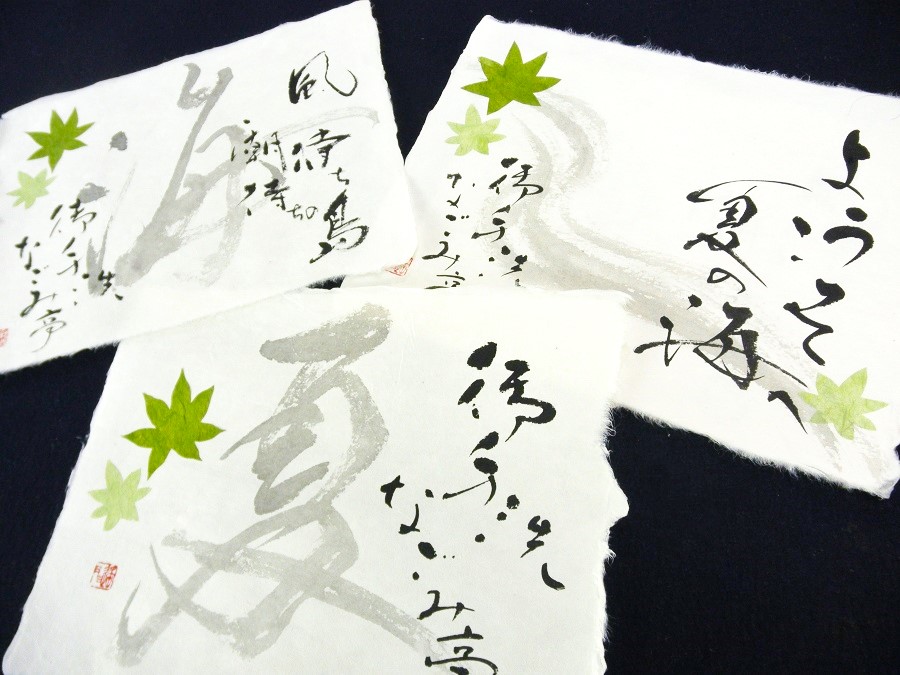 海
風
待ち島
潮待ちの
御手洗
なごみ亭
ようこそ
夏の
海へ
御手洗
なごみ亭
夏
御手洗
なごみ亭